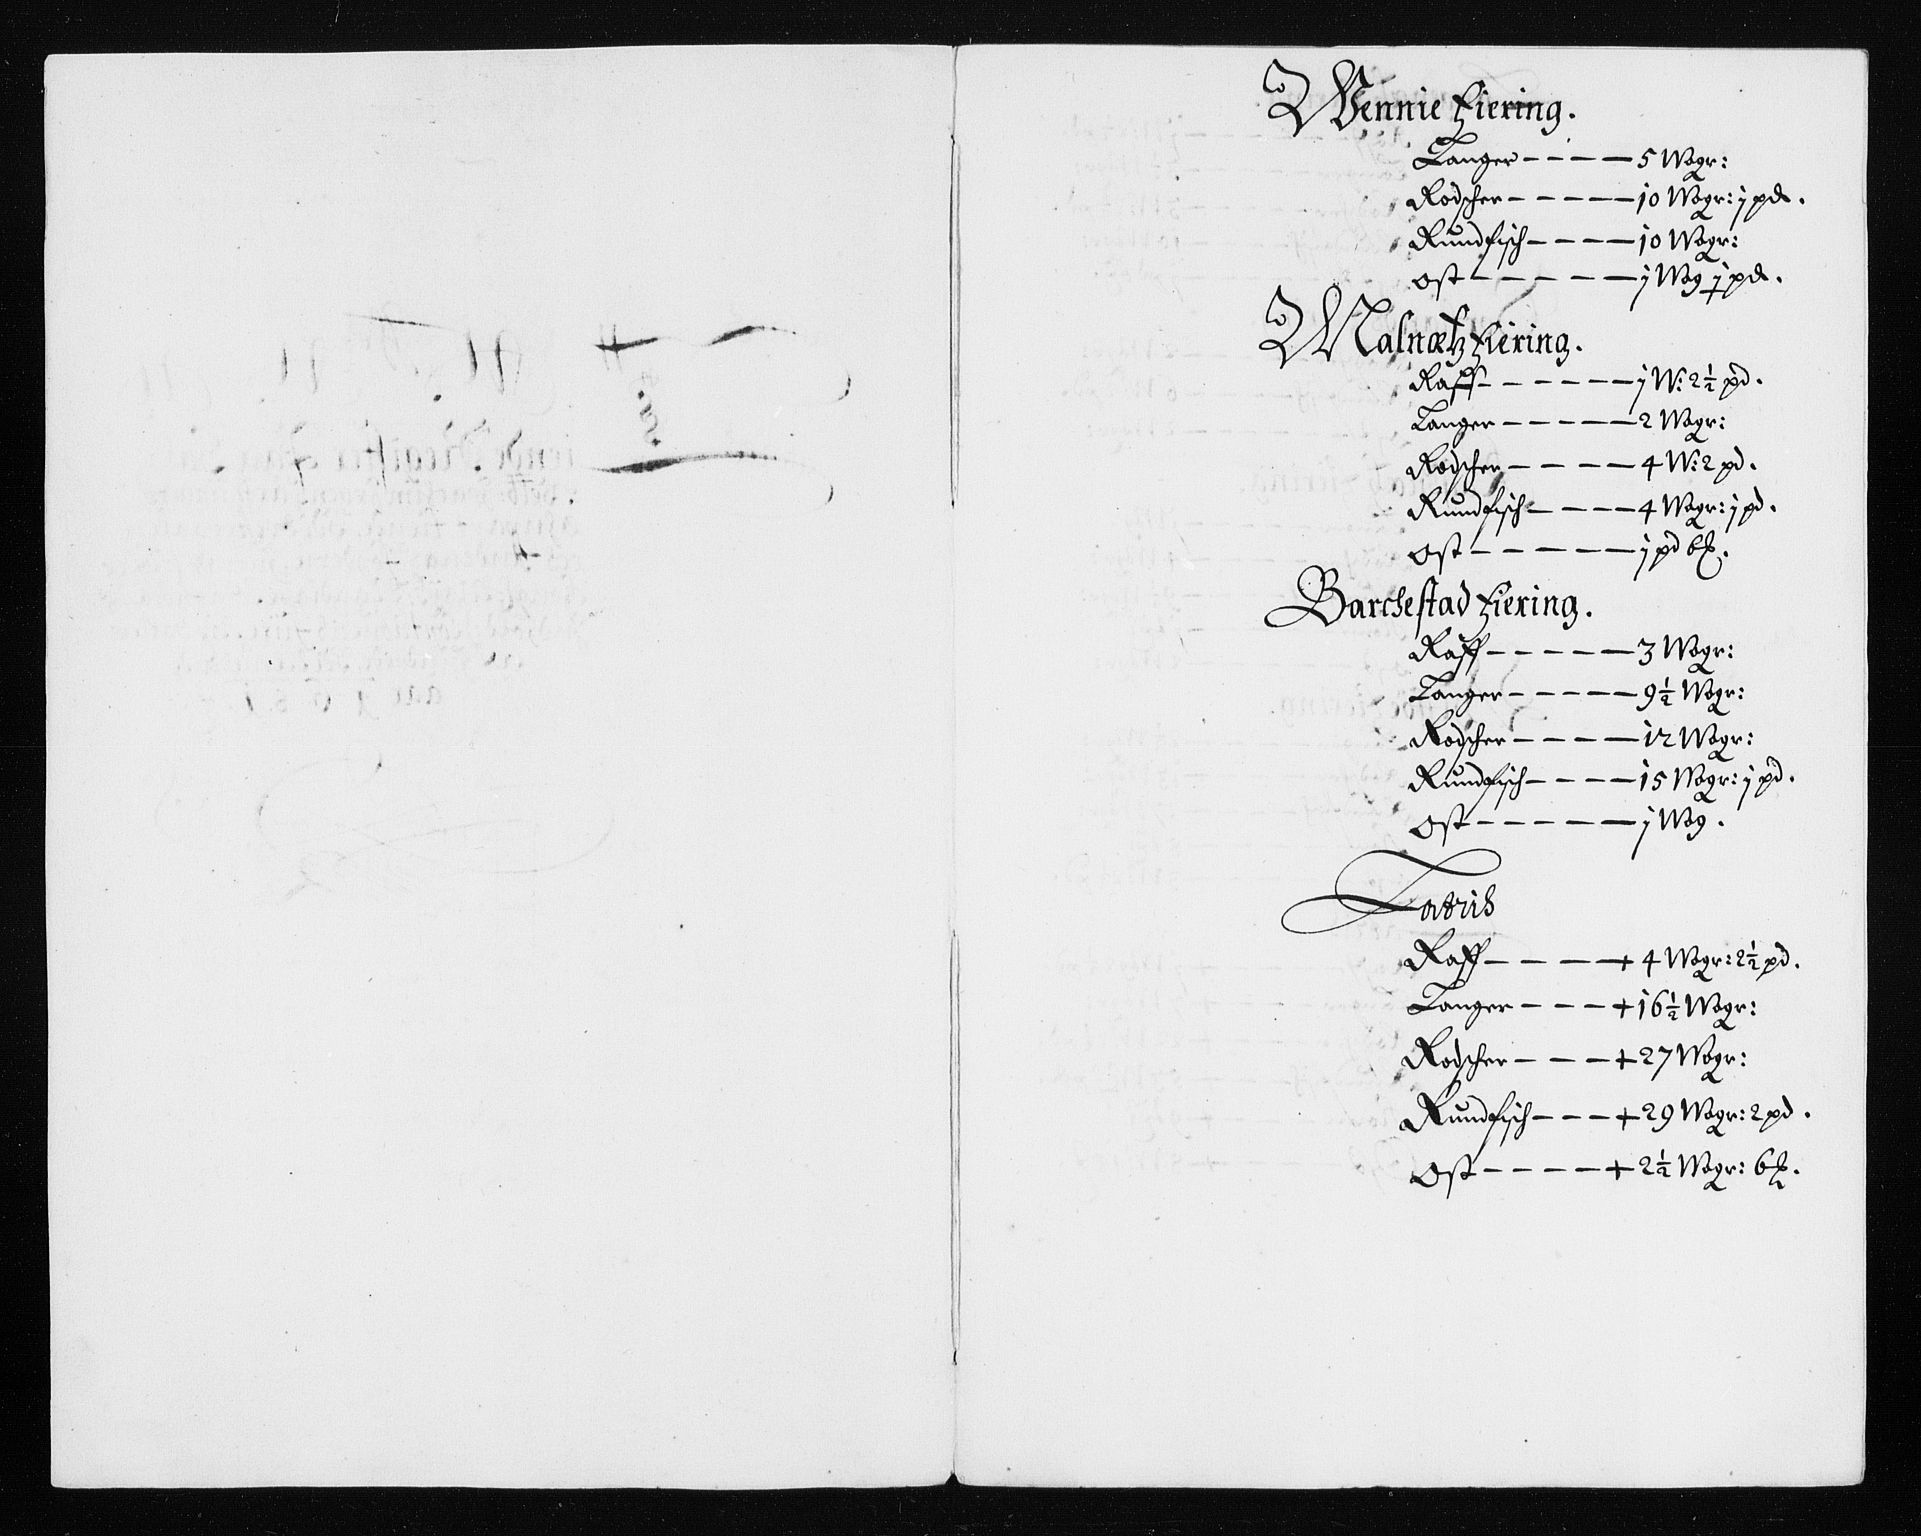 Wennie Fiering.
Langer - - - - 5 Wogr:
Rodscher - - - - - 10 Wogr: j pd.
Rundfisch - - - - 10 Wogr:
Ost - - - - - - j Wog j pd.
Malnæs Fiering.
Raff - - - - - - j W: 2½ pd.
Langer - - - - - 2 Wogr:
Rodscher - - - - 4 W: 2 pd.
Rundfisch - - - - 4 Wogr: j pd.
Ost - - - - - - j pd 6
Barchestad Fiering.
Raff - - - - - 3 Wogr:
Langer - - - - - 9½ Wogr:
Rodscher - - - - 12 Wogr:
Rundfisch - - - - 15 Wogr: j pd.
Ost - - - - - - j Wog.
Latris
Raff - - - - + 4 Wogr: 2½ pd.
Langer - - - + 16½ Wogr:
Rodscher - - - + 27 Wogr:
Rundfisch - - - + 29 Wogr: 2 pd.
Ost - - - - + 2½ Wogr: 6